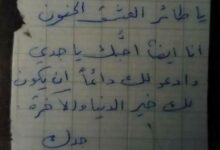 يا طائر العشق الحنون
أنا ايضاً احبك يا جدي
وادعو لك دائماً ان يكون
لك خير الدنيا والاخرة.
جدك